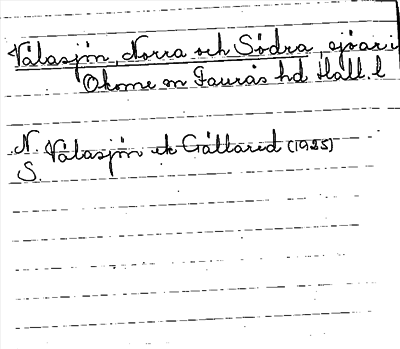 Välasjön, Norra och Södra, sjöar i
Okome sn Faurås hd Hall. l
N. Välasjön ek Gällared (1925)
S.